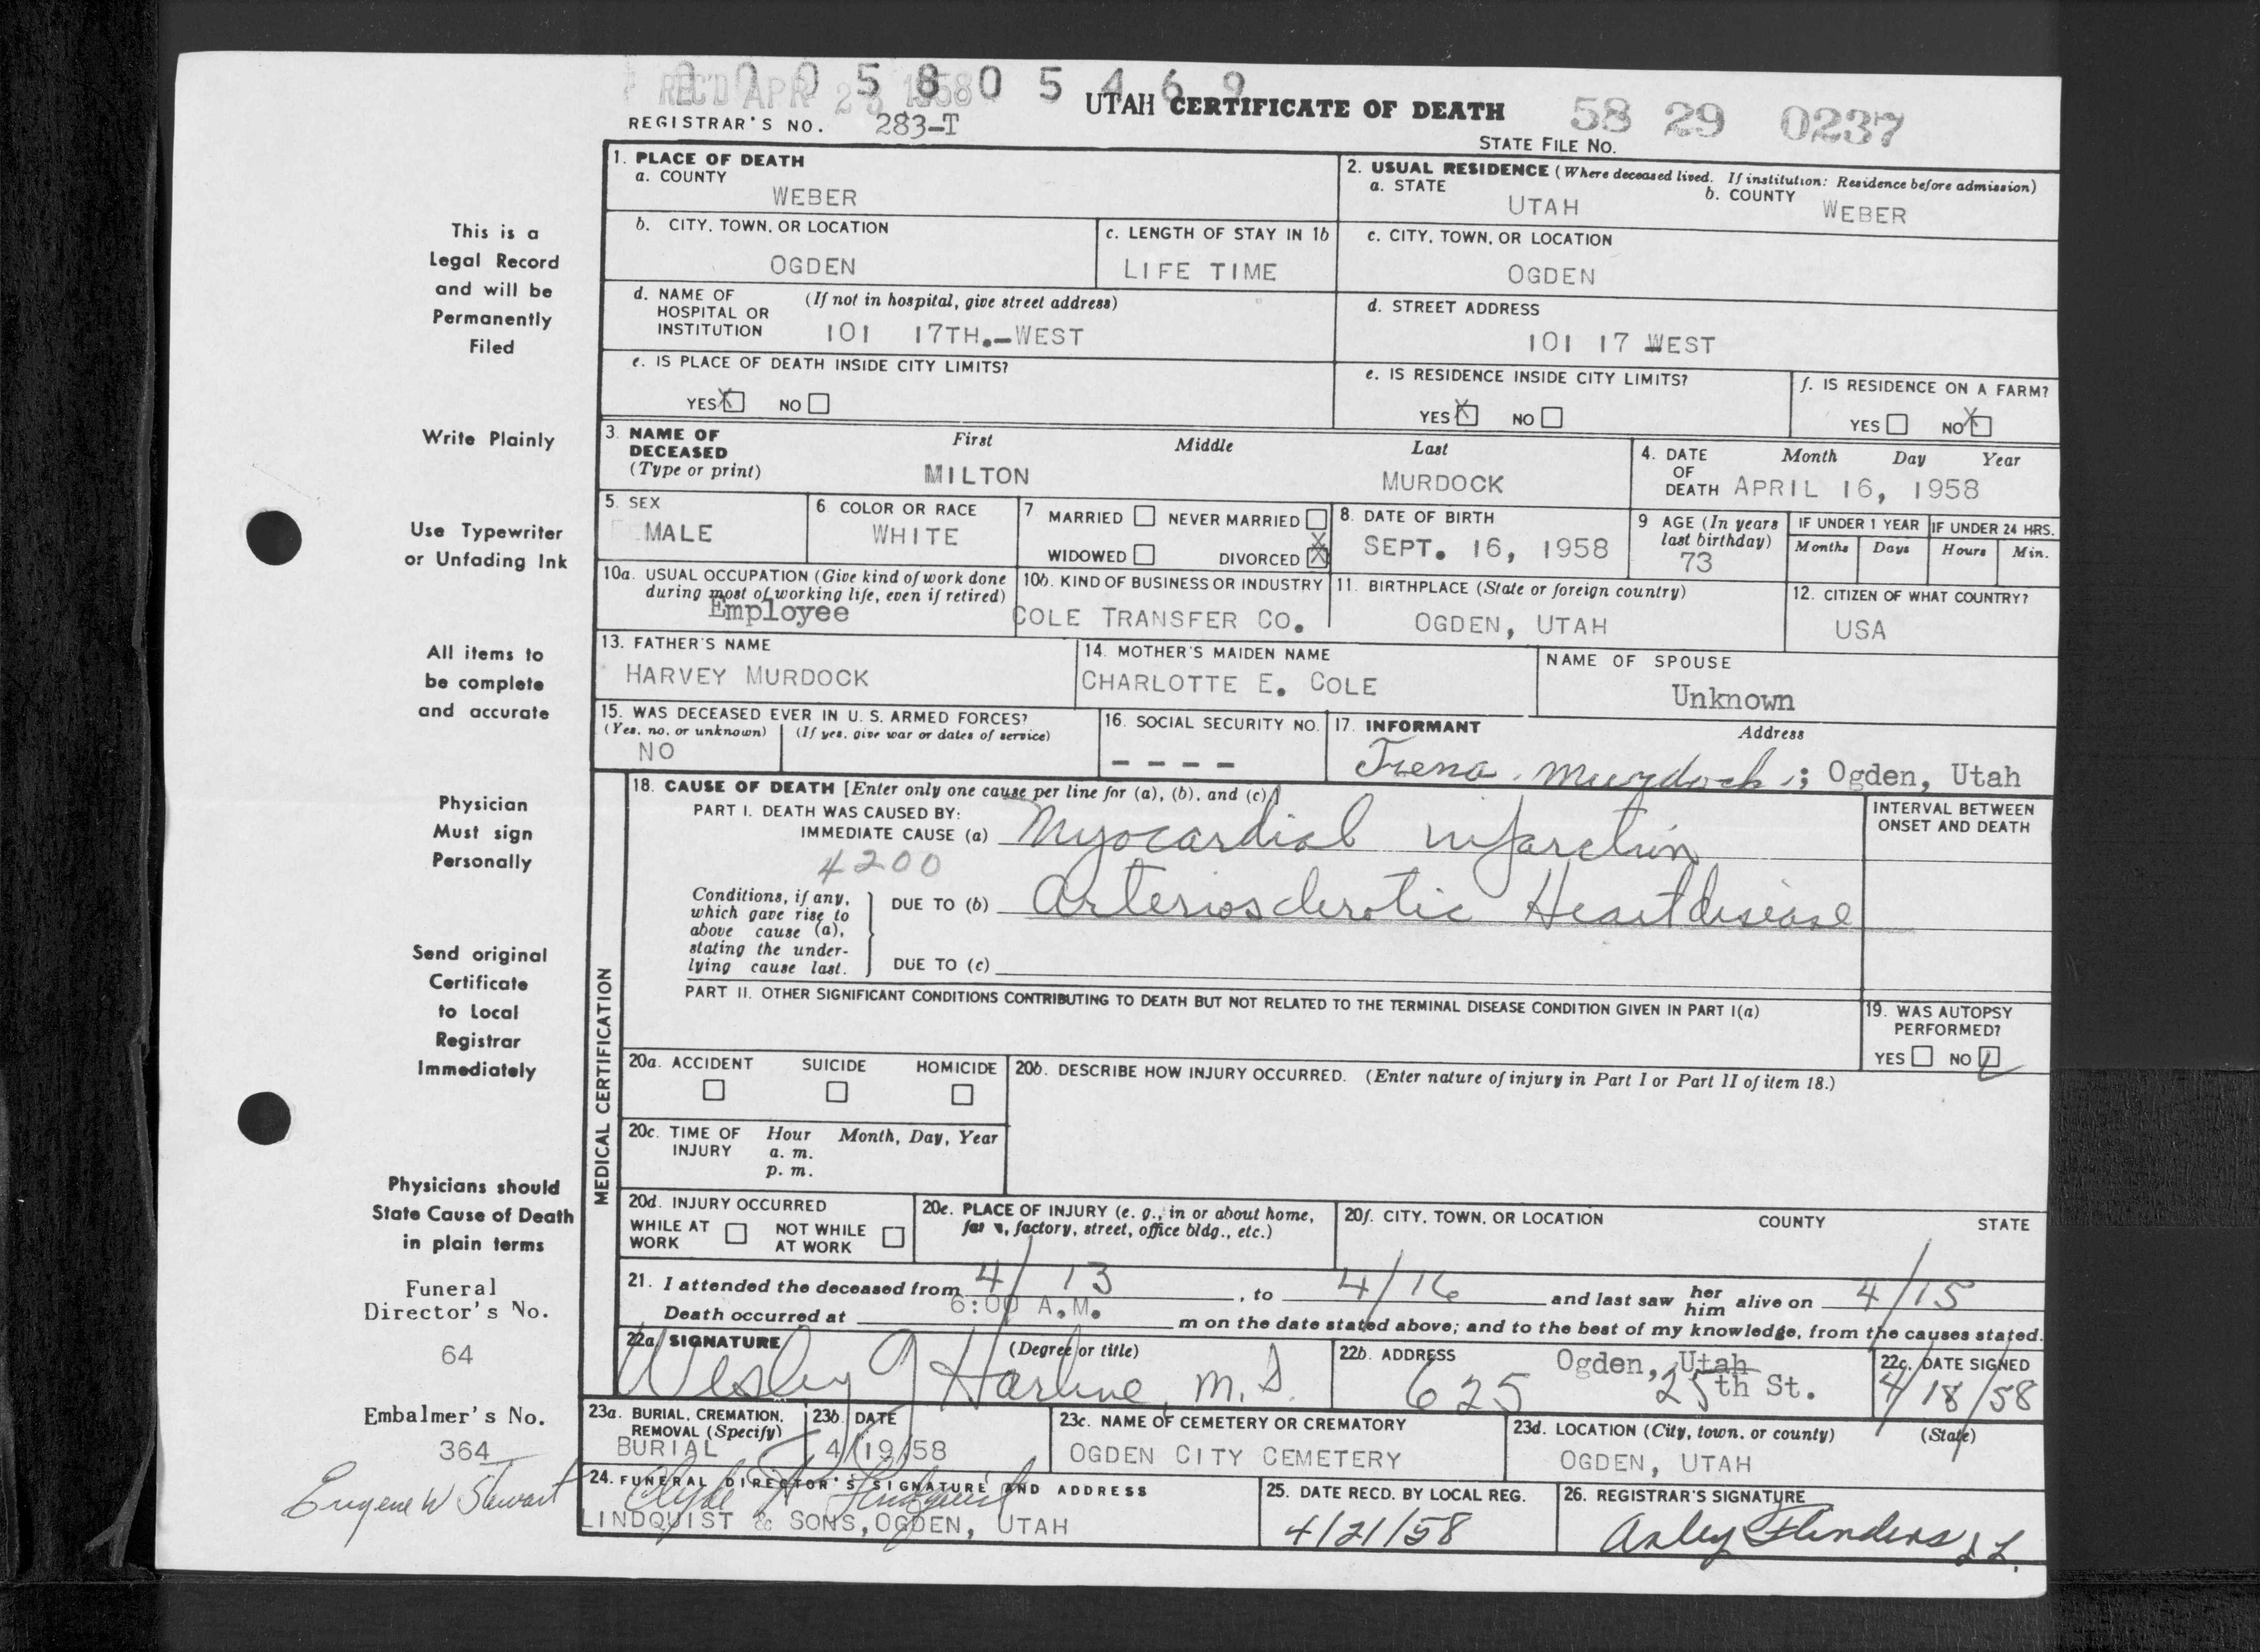 0 0 0 5 8 0 5 4 6 9
REC'D APR 2 1958
UTAH CERTIFICATE OF DEATH
58 29 0237
REGISTRAR'S NO. 283-T
STATE FILE NO.
This is a
Legal Record
and will be
Permanently
Filed
Write Plainly
Use Typewriter
or Unfading Ink
All items to
be complete
and accurate
Physician
Must sign
Personally
Send original
Certificate
to Local
Registrar
Immediately
Physicians should
State Cause of Death
in plain terms
Funeral
Director's No.
64
Embalmer's No.
364
Eugene W Stewart
1. PLACE OF DEATH
a. COUNTY
WEBER
2. USUAL RESIDENCE (Where deceased lived. If institution: Residence before admission)
a. STATE UTAH b. COUNTY WEBER
b. CITY, TOWN, OR LOCATION
OGDEN
c. LENGTH OF STAY IN 1b
LIFE TIME
c. CITY, TOWN, OR LOCATION
OGDEN
d. NAME OF HOSPITAL OR INSTITUTION (If not in hospital, give street address)
101 17TH.-WEST
d. STREET ADDRESS
101 17 WEST
e. IS PLACE OF DEATH INSIDE CITY LIMITS?
YES X NO
e. IS RESIDENCE INSIDE CITY LIMITS?
YES X NO
f. IS RESIDENCE ON A FARM?
YES NO X
3. NAME OF DECEASED (Type or print)
First Middle Last
MILTON MURDOCK
4. DATE OF DEATH Month Day Year
APRIL 16, 1958
5. SEX
MALE
6. COLOR OR RACE
WHITE
7 MARRIED NEVER MARRIED
WIDOWED DIVORCED X
8. DATE OF BIRTH
SEPT. 16, 1958
9 AGE (In years last birthday)
73
IF UNDER 1 YEAR IF UNDER 24 HRS.
Months Days Hours Min.
10a. USUAL OCCUPATION (Give kind of work done during most of working life, even if retired)
Employee
10b. KIND OF BUSINESS OR INDUSTRY
COLE TRANSFER CO.
11. BIRTHPLACE (State or foreign country)
OGDEN, UTAH
12. CITIZEN OF WHAT COUNTRY?
USA
13. FATHER'S NAME
HARVEY MURDOCK
14. MOTHER'S MAIDEN NAME
CHARLOTTE E. COLE
NAME OF SPOUSE
Unknown
15. WAS DECEASED EVER IN U. S. ARMED FORCES?
(Yes, no, or unknown) (If yes, give war or dates of service)
NO
16. SOCIAL SECURITY NO.
- - - -
17. INFORMANT Address
Murdock; Ogden, Utah
MEDICAL CERTIFICATION
18. CAUSE OF DEATH [Enter only one cause per line for (a), (b), and (c).]
PART I. DEATH WAS CAUSED BY:
IMMEDIATE CAUSE (a) Myocardial infarction
4200
INTERVAL BETWEEN ONSET AND DEATH
Conditions, if any, which gave rise to above cause (a), stating the underlying cause last.
DUE TO (b) Arteriosclerotic Heart disease
DUE TO (c)
PART II. OTHER SIGNIFICANT CONDITIONS CONTRIBUTING TO DEATH BUT NOT RELATED TO THE TERMINAL DISEASE CONDITION GIVEN IN PART I(a)
19. WAS AUTOPSY PERFORMED?
YES NO
20a. ACCIDENT SUICIDE HOMICIDE
20b. DESCRIBE HOW INJURY OCCURRED. (Enter nature of injury in Part I or Part II of item 18.)
20c. TIME OF INJURY Hour Month, Day, Year
a. m.
p. m.
20d. INJURY OCCURRED
WHILE AT WORK NOT WHILE AT WORK
20e. PLACE OF INJURY (e. g., in or about home, farm, factory, street, office bldg., etc.)
20f. CITY, TOWN, OR LOCATION COUNTY STATE
21. I attended the deceased from 4/13, to 4/16 and last saw her him alive on 4/15
Death occurred at 6:00 A.M. m on the date stated above; and to the best of my knowledge, from the causes stated.
22a. SIGNATURE (Degree or title)
Wesley G Harline, M.D.
22b. ADDRESS
Ogden, Utah
625 25th St.
22c. DATE SIGNED
4/18/58
23a. BURIAL, CREMATION, REMOVAL (Specify)
BURIAL
23b. DATE
4/19/58
23c. NAME OF CEMETERY OR CREMATORY
OGDEN CITY CEMETERY
23d. LOCATION (City, town, or county) (State)
OGDEN, UTAH
24. FUNERAL DIRECTOR'S SIGNATURE AND ADDRESS
LINDQUIST & SONS, OGDEN, UTAH
25. DATE RECD. BY LOCAL REG.
4/21/58
26. REGISTRAR'S SIGNATURE
Arley Flinders